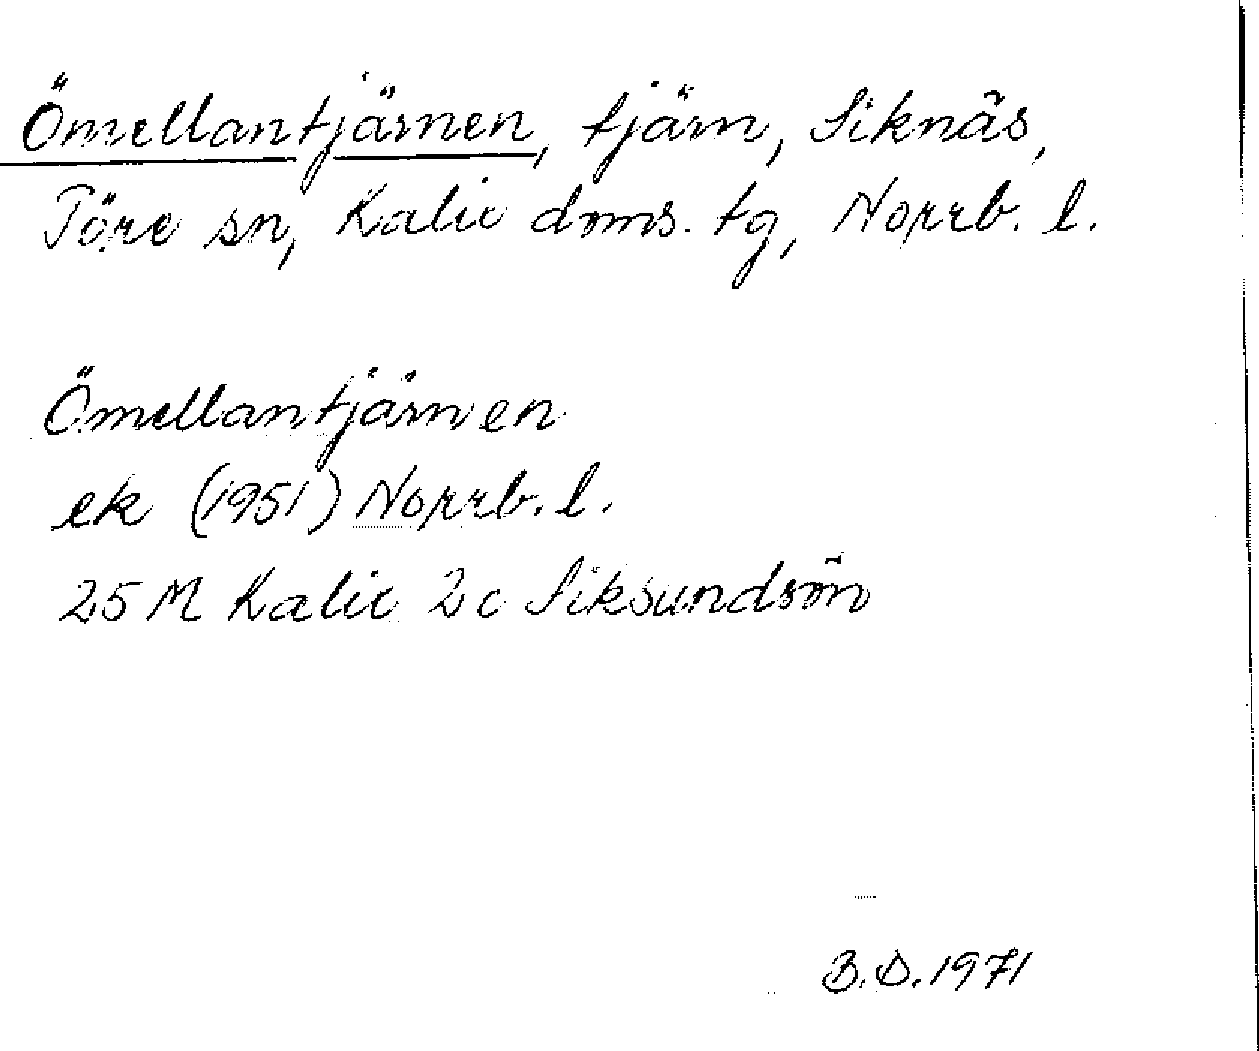 Ömellantjärnen, tjärn, Siknäs,
Töre sn, Kalix doms. tg, Norrb. l.
Ömellantjärnen
ek (1951) Norrb. l.
25 M Kalix 2c Siksundsön
B.D. 1971